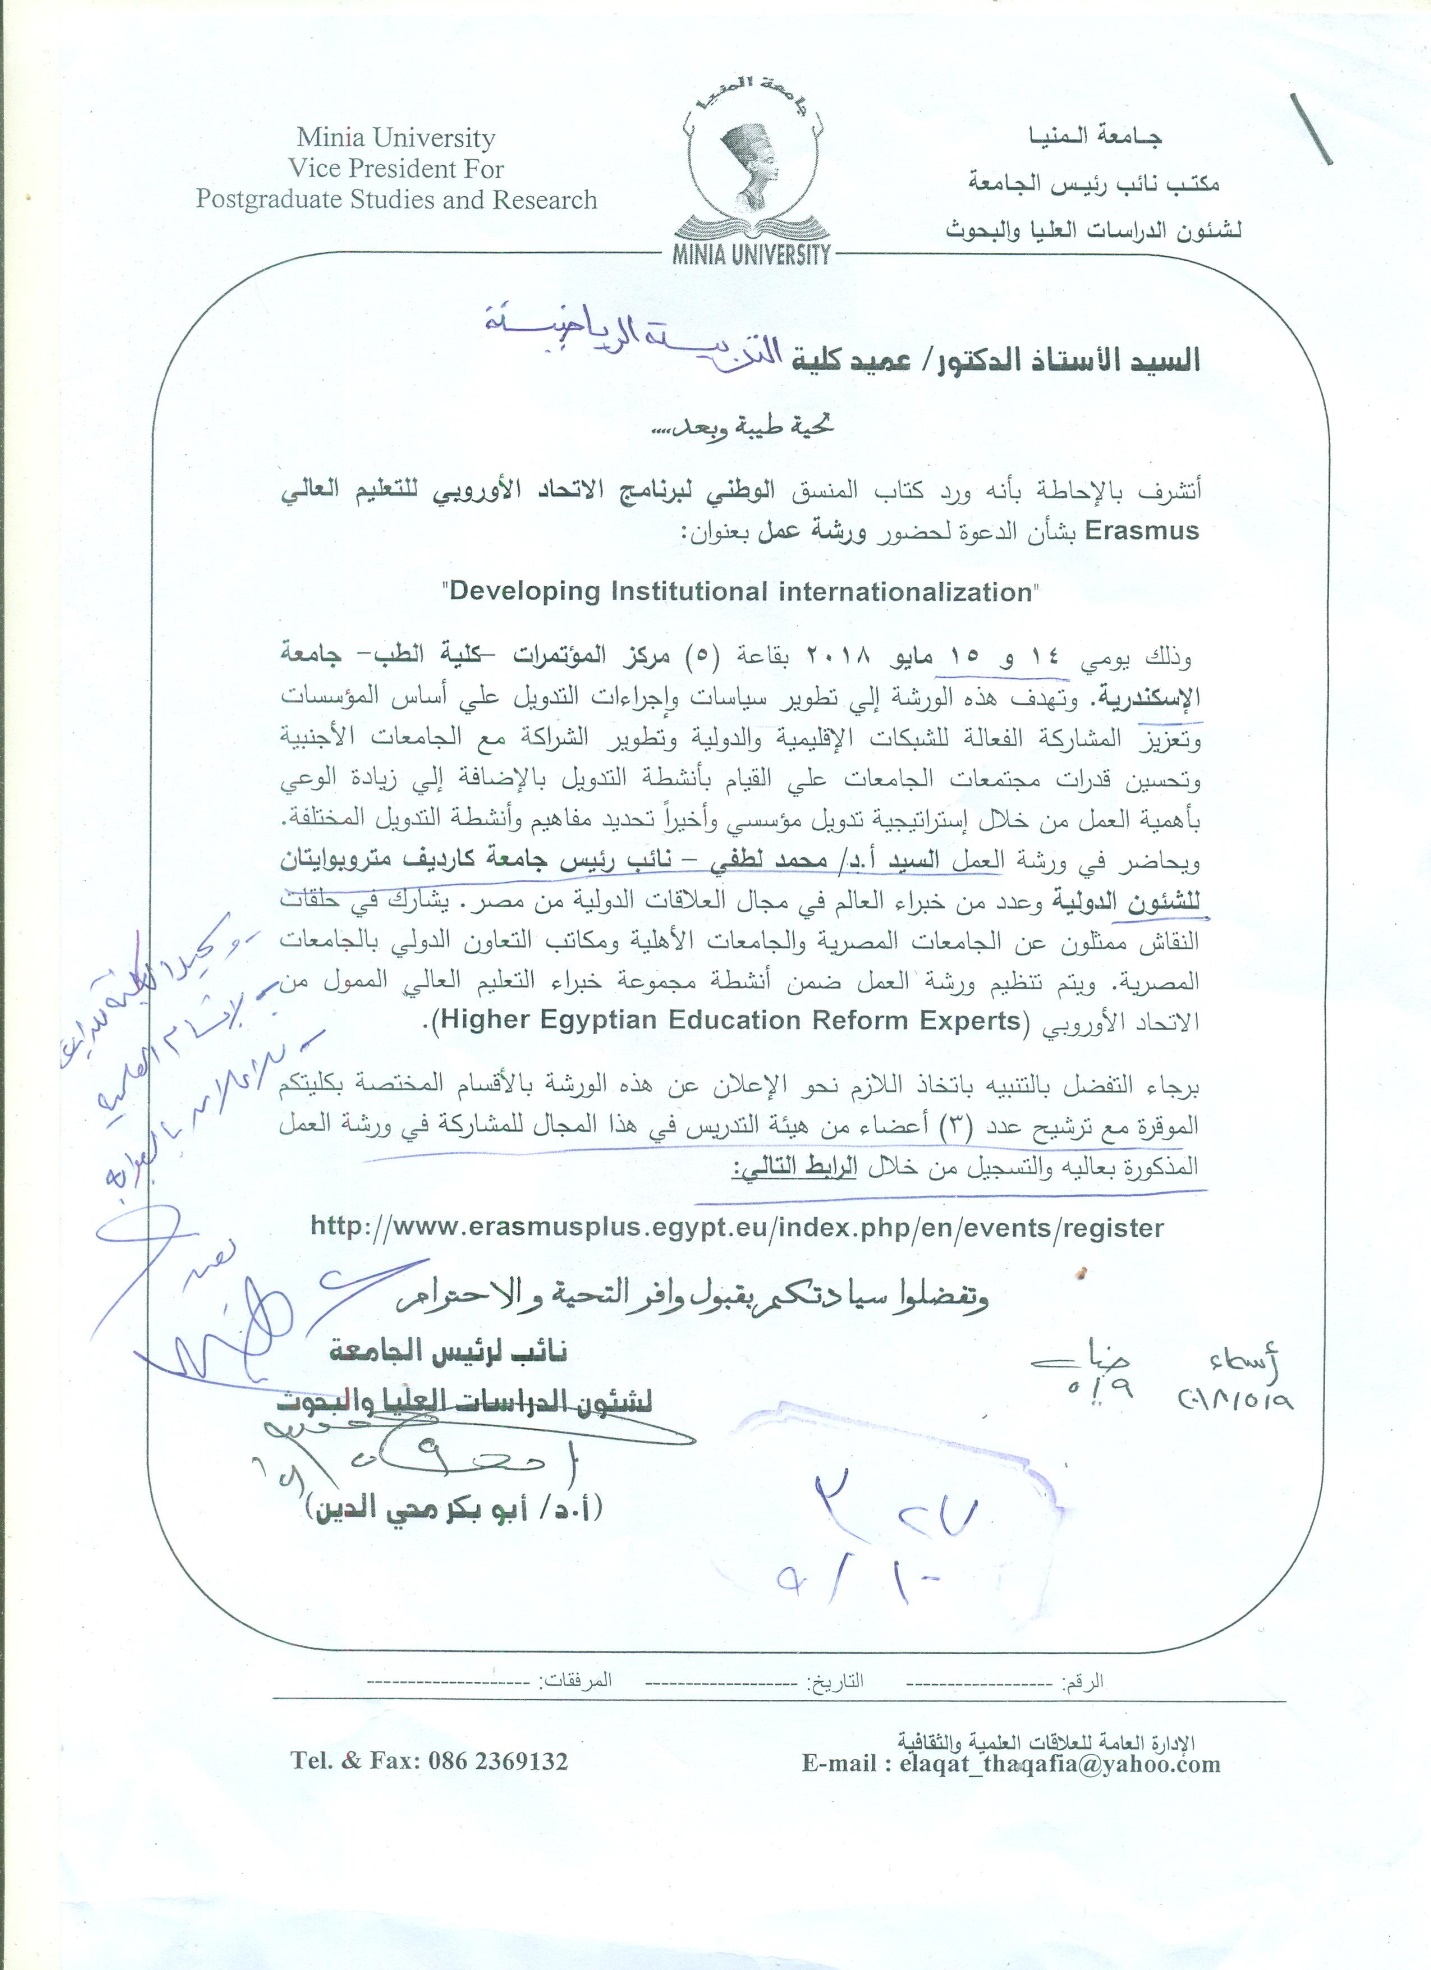 Minia University
Vice President For
Postgraduate Studies and Research
جامعة المنيا
MINIA UNIVERSITY
جامعة المنيا
مكتب نائب رئيس الجامعة
لشئون الدراسات العليا والبحوث
السيد الأستاذ الدكتور/ عميد كلية التربية الرياضية
تحية طيبة وبعد.....
أتشرف بالإحاطة بأنه ورد كتاب المنسق الوطني لبرنامج الاتحاد الأوروبي للتعليم العالي
Erasmus بشأن الدعوة لحضور ورشة عمل بعنوان:
"Developing Institutional internationalization"
وذلك يومي ١٤ و ١٥ مايو ٢٠١٨ بقاعة (٥) مركز المؤتمرات –كلية الطب– جامعة
الإسكندرية. وتهدف هذه الورشة إلي تطوير سياسات وإجراءات التدويل علي أساس المؤسسات
وتعزيز المشاركة الفعالة للشبكات الإقليمية والدولية وتطوير الشراكة مع الجامعات الأجنبية
وتحسين قدرات مجتمعات الجامعات علي القيام بأنشطة التدويل بالإضافة إلي زيادة الوعي
بأهمية العمل من خلال إستراتيجية تدويل مؤسسي وأخيراً تحديد مفاهيم وأنشطة التدويل المختلفة.
ويحاضر في ورشة العمل السيد أ.د/ محمد لطفي – نائب رئيس جامعة كارديف متروبوايتان
للشئون الدولية وعدد من خبراء العالم في مجال العلاقات الدولية من مصر. يشارك في حلقات
النقاش ممثلون عن الجامعات المصرية والجامعات الأهلية ومكاتب التعاون الدولي بالجامعات
المصرية. ويتم تنظيم ورشة العمل ضمن أنشطة مجموعة خبراء التعليم العالي الممول من
الاتحاد الأوروبي (Higher Egyptian Education Reform Experts).
برجاء التفضل بالتنبيه باتخاذ اللازم نحو الإعلان عن هذه الورشة بالأقسام المختصة بكليتكم
الموقرة مع ترشيح عدد (٣) أعضاء من هيئة التدريس في هذا المجال للمشاركة في ورشة العمل
المذكورة بعاليه والتسجيل من خلال الرابط التالي:
http://www.erasmusplus.egypt.eu/index.php/en/events/register
وتفضلوا سيادتكم بقبول وافر التحية والاحترام
نائب لرئيس الجامعة
لشئون الدراسات العليا والبحوث
(أ.د/ أبو بكر محي الدين)
أسماء
٢٠١٨/٥/٩
٥/٩
٣٠٢٧
٥/١٠
الرقم: ------------------ التاريخ: ------------------- المرفقات: --------------------
الإدارة العامة للعلاقات العلمية والثقافية
Tel. & Fax: 086 2369132
E-mail : elaqat_thaqafia@yahoo.com